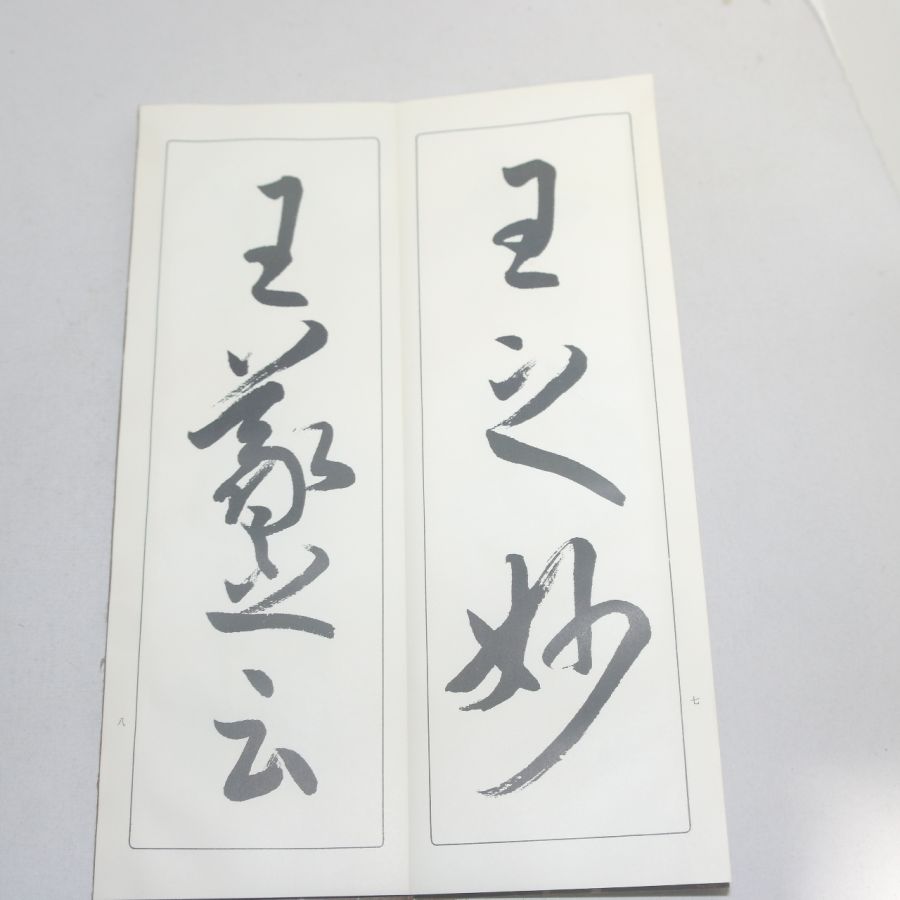 王之妙
七
王羲之云
八